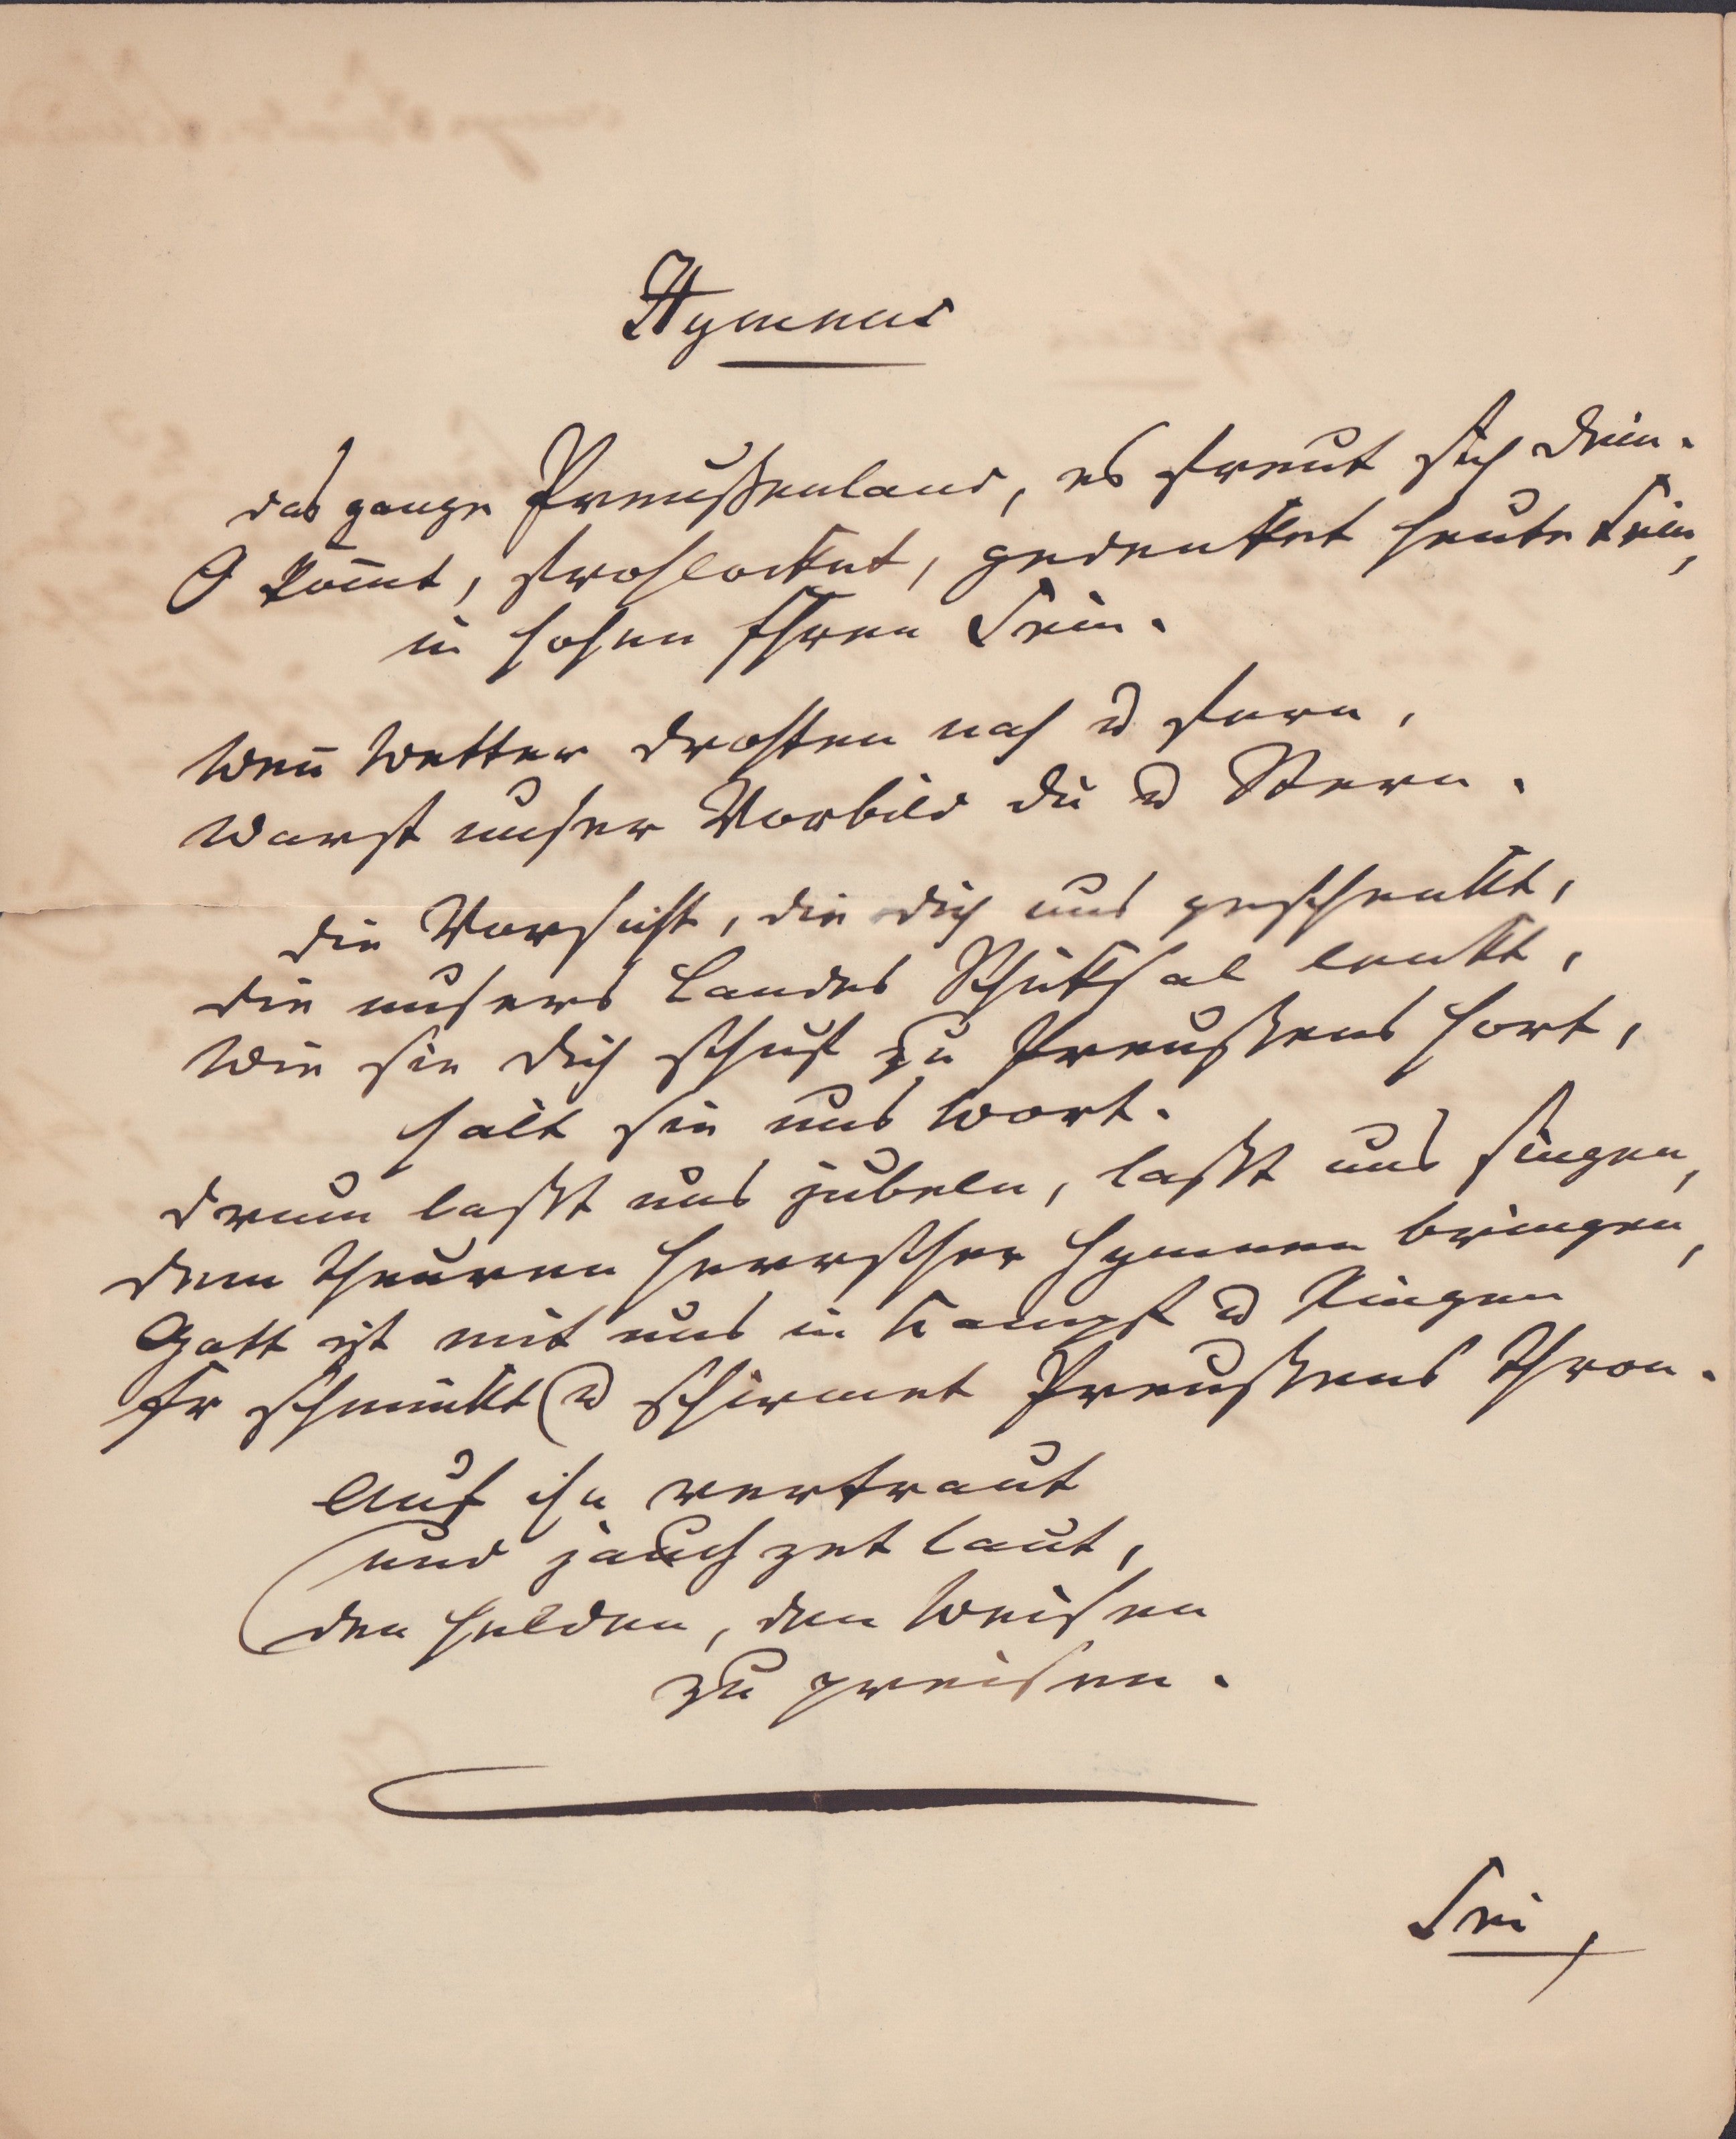 Hymnus
das ganze Preußenland, es freut sich dein.
O kom̄t, frohlocket, gedenket heute sein,
in hohen Ehren sein.
Wen̄ Wetter drohten nah u fern,
warst unser Vorbild du u Stern.
die Vorsicht, die dich uns geschenkt,
die unsers Landes Schiksal lenkt,
wie sie dich schuf zu Preußens Hort,
hält sie uns Wort.
drum laßt uns jubeln, laßt uns singen,
dem theuren Herrscher Hymnen bringen,
Gott ist mit uns in Kampf u Ringen
Er schmükt u schirmet Preußens Thron.
Auf ihn vertraut
und jauchzet laut,
den Helden, den Weisen
zu preisen.